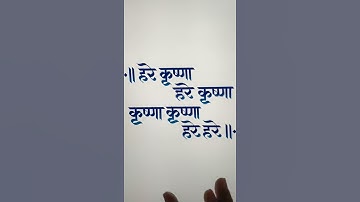 ·॥ हरे कृष्णा
हरे कृष्णा
कृष्णा कृष्णा
हरे हरे ॥·